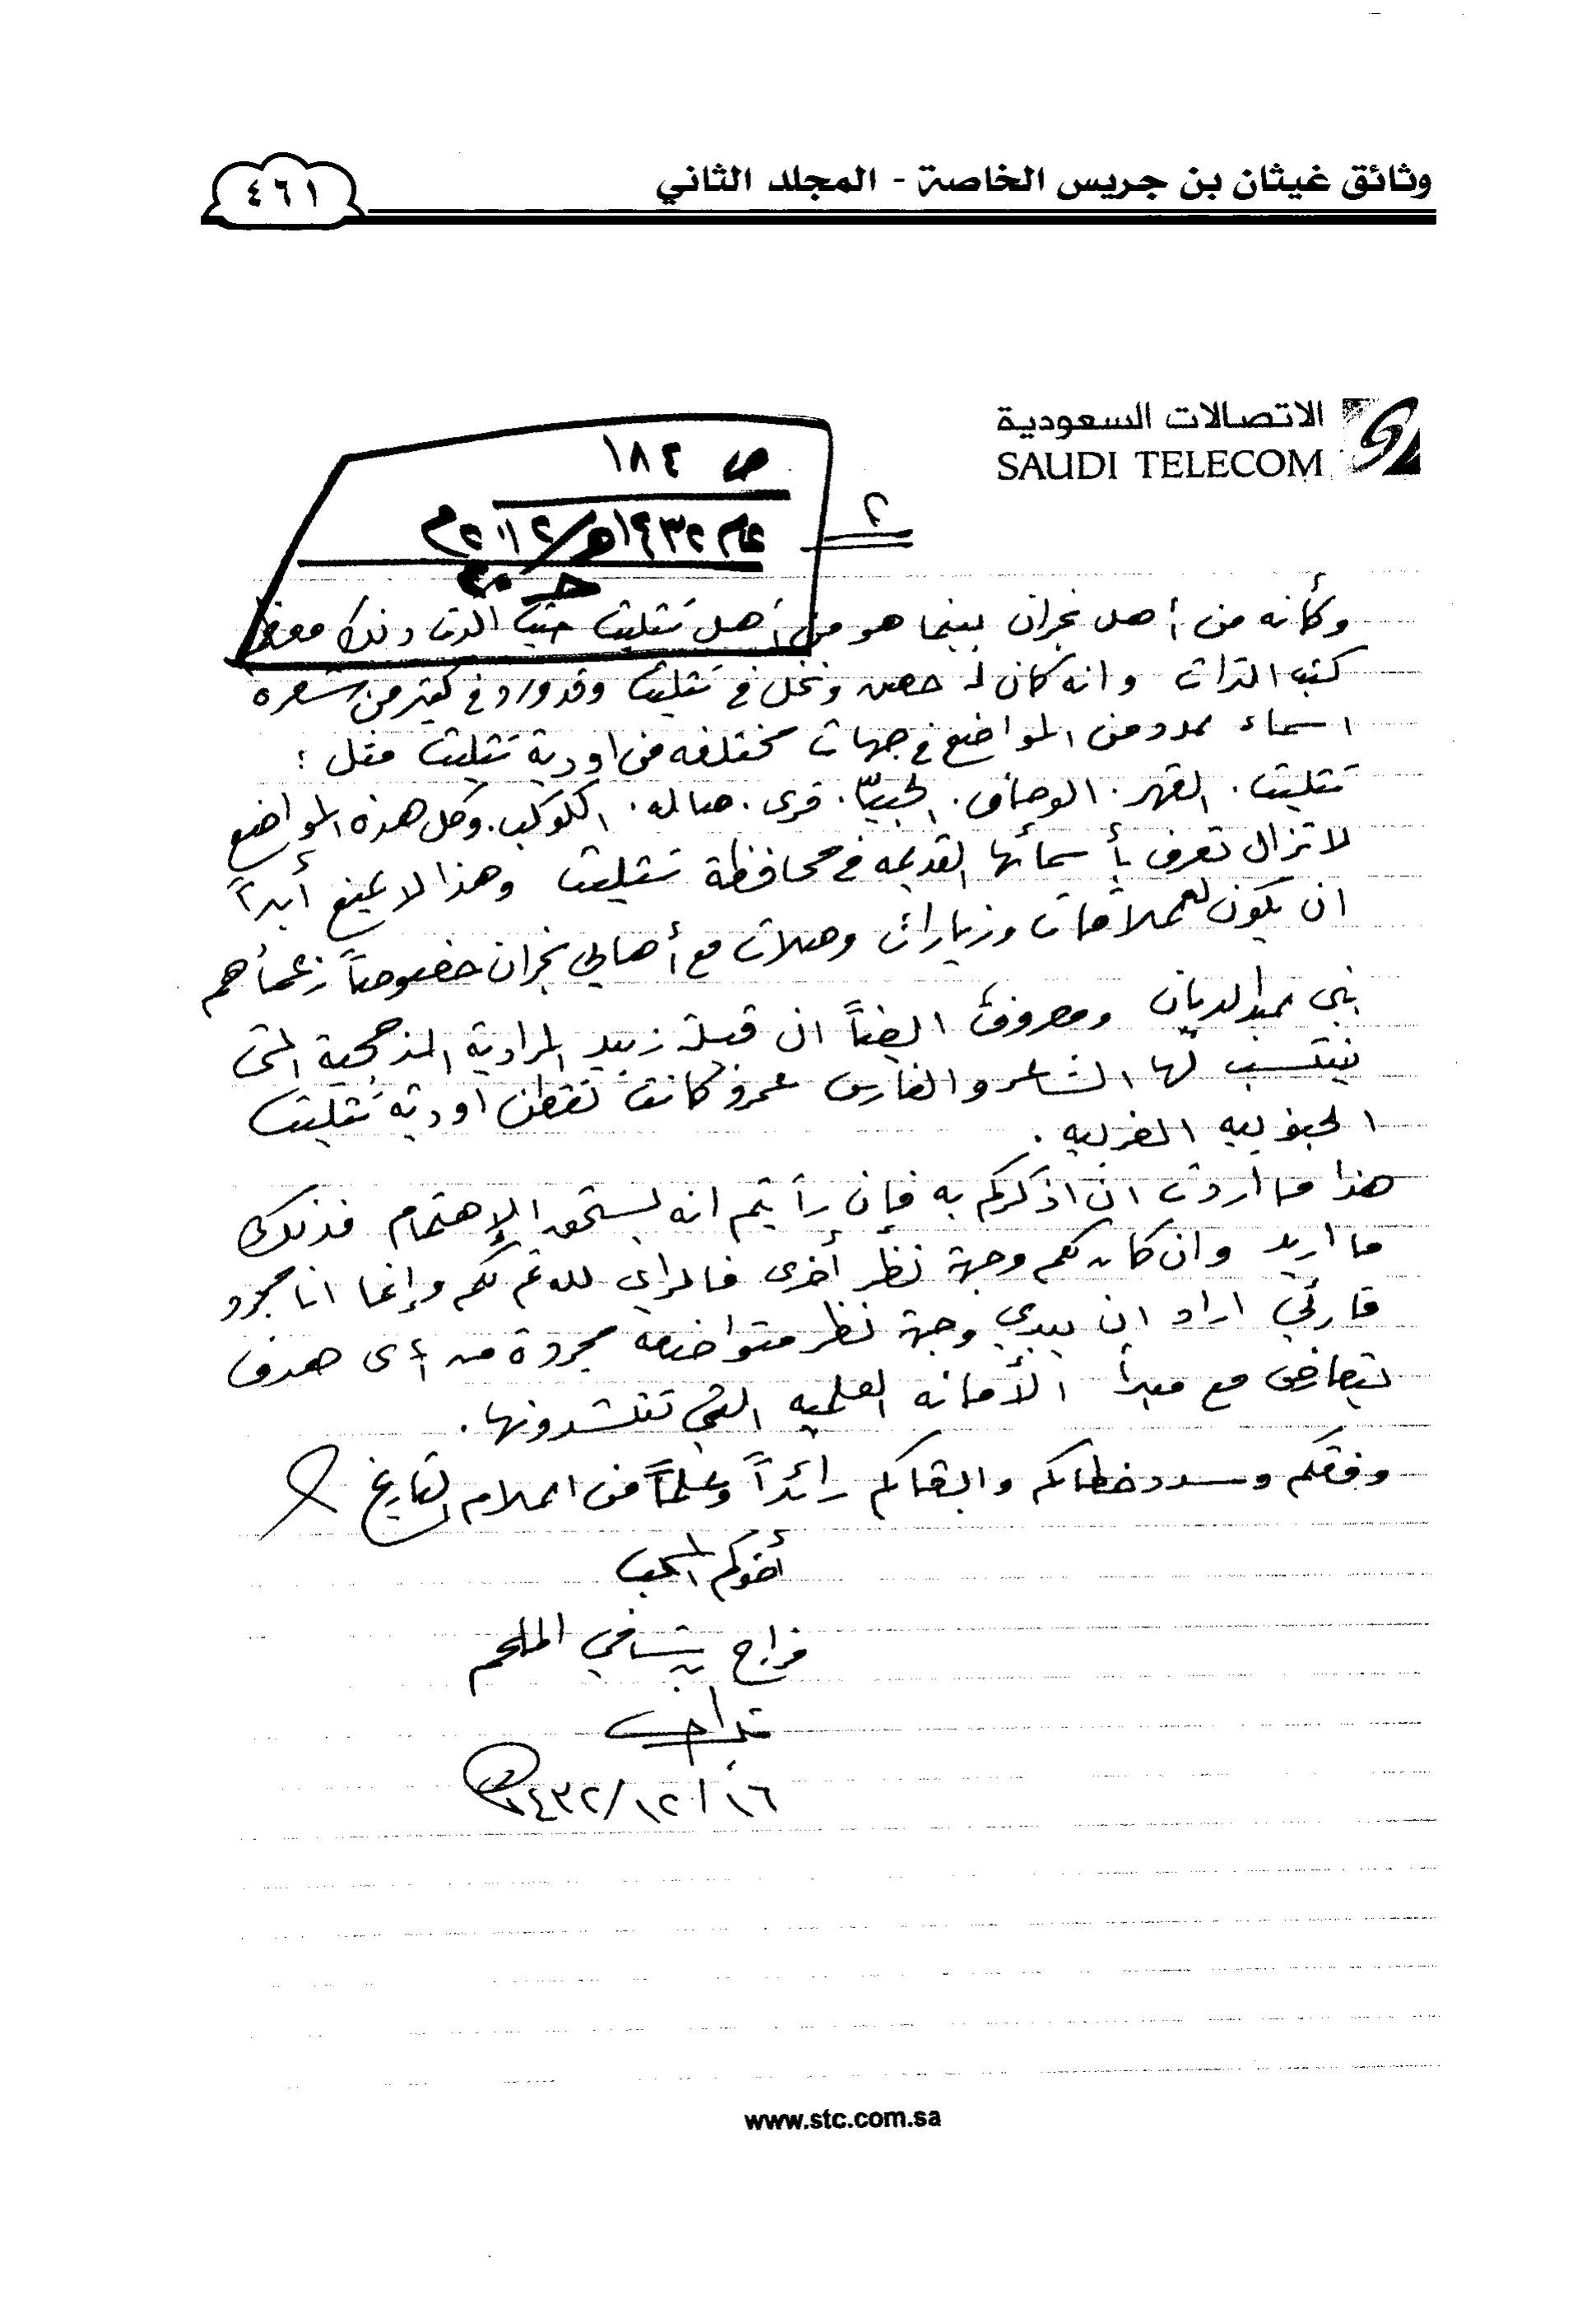 وثائق غيثان بن جريس الخاصة - المجلد الثاني
٤٦١
الاتصالات السعودية
SAUDI TELECOM
ص ١٨٤
عام ١٤٣٢هـ/٢٠١١م
٢
وكأنه من أهل نجران بينما هو من أهل تثليث حيث الدت وذلك
كتب التراث وانه كان له حصن ونخل في تثليث وقد ورد في كثير من شعره
اسماء عدد من المواضع في جهات مختلفه من اودية تثليث مثل :
تثليث . القهر . الوحاف . الجبيا . قرى . صاله . الكوكب . وكل هذه المواضع
لا تزال تعرف بأسمائها القديمه في محافظة تثليث وهذا لا يمنع أبداً
ان يكون له علاقات وزيارات وصلات مع أهالي نجران خصوصاً زعمائهم
بني عبد الديان ومعروف ايضاً ان قبيلة زبيد المرادية المذحجية التي
ينتسب لها الشاعر والفارس عمرو كانت تقطن اودية تثليث
الجنوبيه الغربيه .
هذا ما اردت ان اذكركم به فإن رأيتم انه يستحق الإهتمام فذلك
ما اريد وان كان لكم وجهة نظر أخرى فالرأي لكم وإنما انا مجرد
قارئي اراد ان يبدي وجهة نظر متواضعه مجردة من أى هدف
يتعارض مع مبدأ الأمانه العلميه التي تنشدونها .
وفقكم وسدد خطاكم وابقاكم رائداً وعلماً من اعلام التاريخ
أخوكم المحب
فراج بن شافي الملحم
١٦/١٢/١٤٣٢هـ
www.stc.com.sa